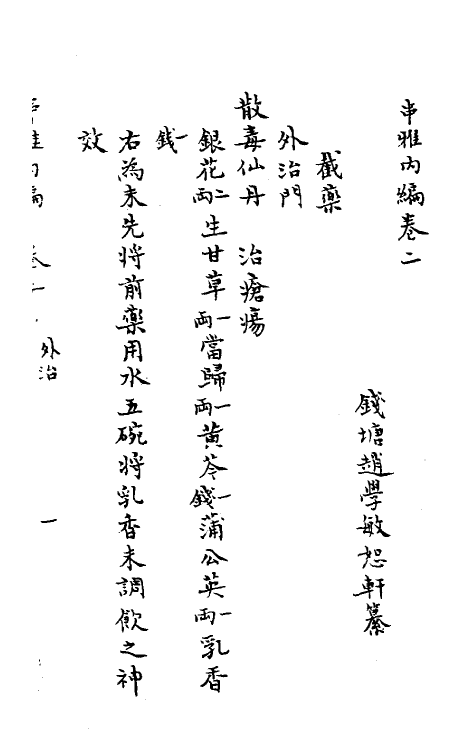 串雅内編卷二
錢塘趙學敏恕軒纂
截藥
外治門
散毒仙丹 治瘡瘍
銀花二兩生甘草一兩當歸一兩黄芩一錢蒲公英一兩乳香
一錢
右為末先将前藥用水五碗将乳香末調飲之神
效
串雅内編 卷二 外治 一